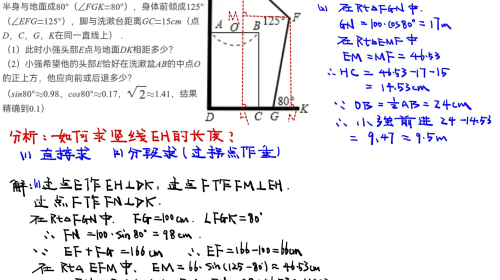 半身与地面成80°（∠FGK=80°），身体前倾成125°
（∠EFG=125°），脚与洗漱台距离GC=15cm（点
D，C，G，K在同一直线上）.
（1）此时小强头部E点与地面DK相距多少？
（2）小强希望他的头部E恰好在洗漱盆AB的中点O
的正上方，他应向前或后退多少？
（sin80°≈0.98，cos80°≈0.17，√2≈1.41，结果
精确到0.1）
M
F
125°
A
O
B
80°
D
C
G
K
分析：如何求竖线EH的长度？
(1) 直接求 (2) 分段求（过拐点作垂）
解：(1) 过点E作EH⊥DK，过点F作FM⊥EH.
过点F作FN⊥DK.
在Rt△FGN中. FG=100cm. ∠FGK=80°
∴ FN=100·sin80°=98cm.
∵ EF+FG=166cm ∴ EF=166-100=66cm
在Rt△EFM中. EM=66·sin(125-80)≈46.53cm
(2) 在Rt△FGN中.
GN=100·cos80°=17m
在Rt△EMF中
EM=MF=46.53
∴ HC=46.53-17-15
=14.53cm
∵ OB=½AB=24cm
∴ 小强前进 24-14.53
=9.47≈9.5m